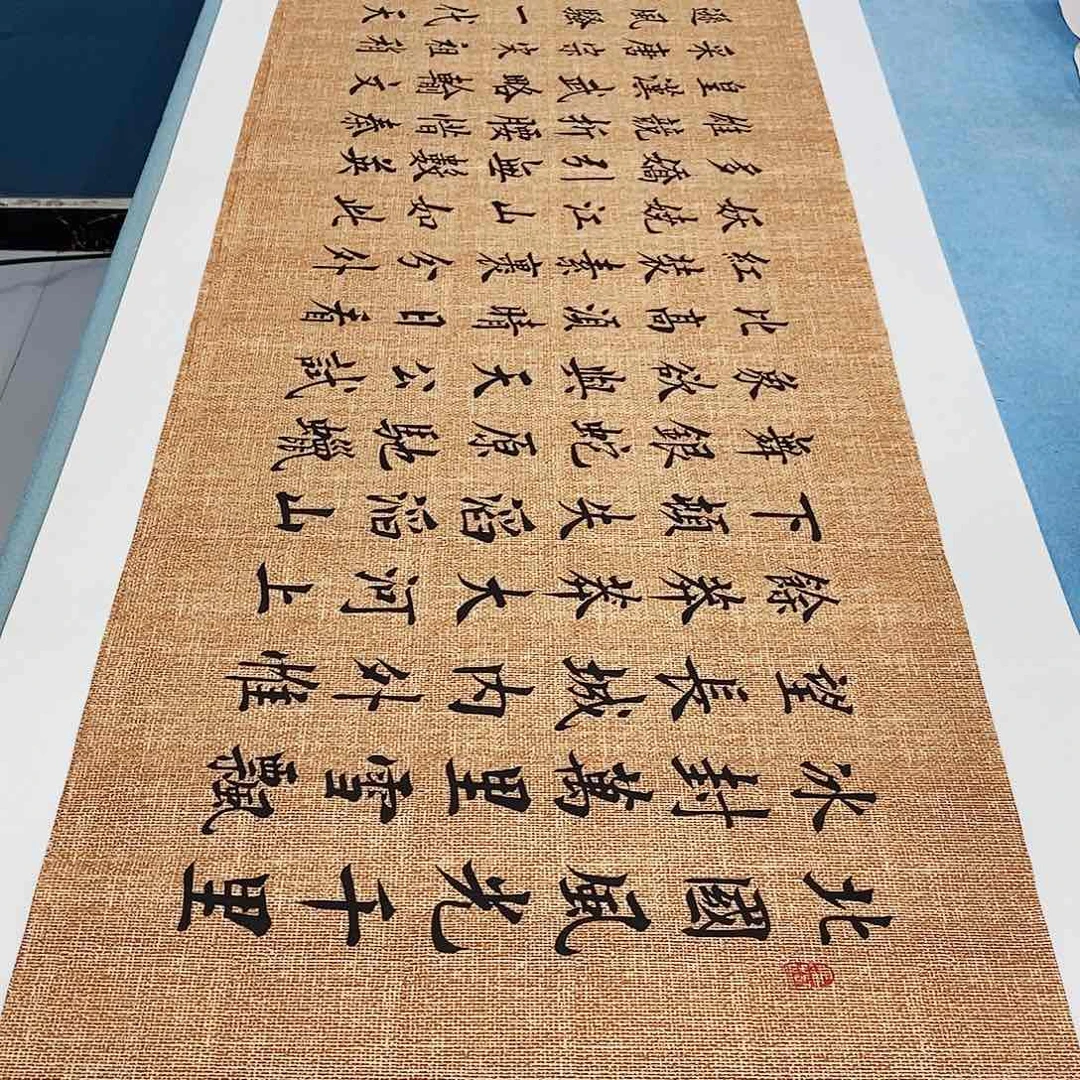 北國風光千里
冰封萬里雪飄
望長城內外惟
餘莽莽大河上
下頓失滔滔山
舞銀蛇原馳蠟
象欲與天公試
比高須晴日看
紅裝素裹分外
妖嬈江山如此
多嬌引無數英
雄競折腰惜秦
皇漢武略輸文
采唐宗宋祖稍
遜風騷一代天